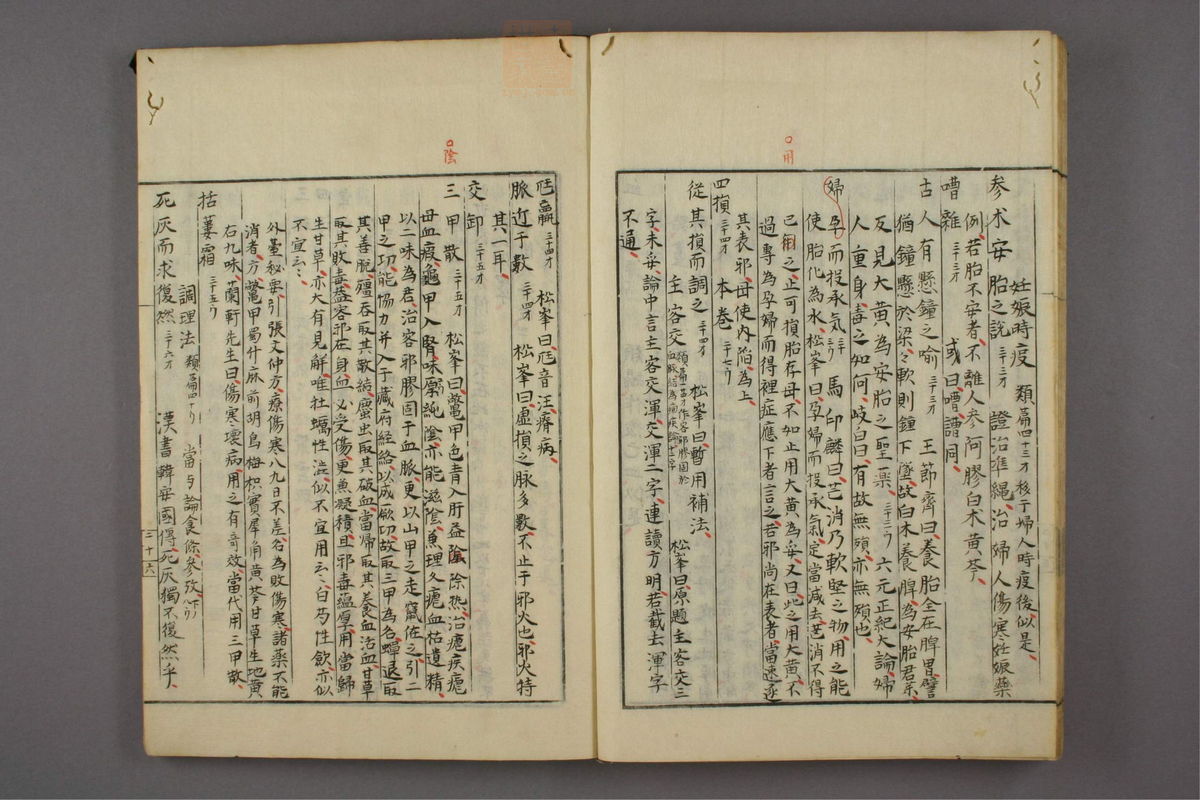 妊娠時疫 類篇四十三才移于婦人時疫後似是
參朮安胎之説 三十三才 證治準繩治婦人傷寒妊娠藥
例若胎不安者不離人參阿膠白朮黄芩
嘈雜 三十三才 或曰嘈譜同
古人有懸鐘之喻 三十三才 王節齋曰養胎全在脾胃譬
猶鐘懸於梁々軟則鐘下墜故白朮養脾為安胎君茱
反見大黄為安胎之聖藥 三十三ウ 六元正紀大論婦
人重身毒之如何岐曰有故無殞亦無殞也
婦孕而投承气 三十三ウ 馬印麟曰芒消乃軟堅之物用之能
使胎化為水松峯曰孕婦而投承氣定當减去芒消不得
已用之止可損胎存母不如止用大黄為妥又曰此之用大黄不
過專為孕婦而得裡症應下者言之若邪尚在表者當速逐
其表邪毋使内陷為上
四損 三十四才 本卷 二十七ウ
從其損而調之 三十四才 松峯曰暫用補法
主客交 類篇 作客邪膠固於血脉結為痼疾論廿二字 松峯曰原題主客交三
字未妥論中言主客交渾交渾二字連讀方明若截去渾字
不通
用
尫羸 三十四才 松峯曰尫音汪瘠病
脈近于數 三十四才 松峯曰虚損之脉多數不止于邪火也邪火特
其一耳
交卸 三十五才
三甲散 三十五才 松峯曰鼈甲色青入肝益陰除熱治瘧疾瘧
母血瘕龜甲入腎味厚純陰亦能滋陰兼理久瘧血枯遺精
以二味為君治客邪膠固于血脈更以山甲之走竄佐之引二
甲之功能協力并入于藏府經絡以成厥功故取三甲為名蟬退取
其善脫殭蚕取其散結䗪虫取其破血當歸取其養血活血甘草
取其敗毒葢客邪在身血必受傷更兼凝積且邪毒蘊厚用當歸
生甘草亦大有見解唯牡蠣性澁似不宜用云々白芍性歛亦似
不宜云々
外臺秘要引張文仲方療傷寒八九日不差名為敗傷寒諸藥不能
消者方鼈甲蜀升麻前胡烏梅枳實犀角黄芩甘草生地黄
右九味蘭軒先生曰傷寒壞病用之有奇效當代用三甲散
括蔞霜 三十五ウ
調理法 類篇四十ウ 當与論食條參攷
死灰而求復然 三十六才 漢書韓安國傳死灰獨不復然乎
陰
三十六